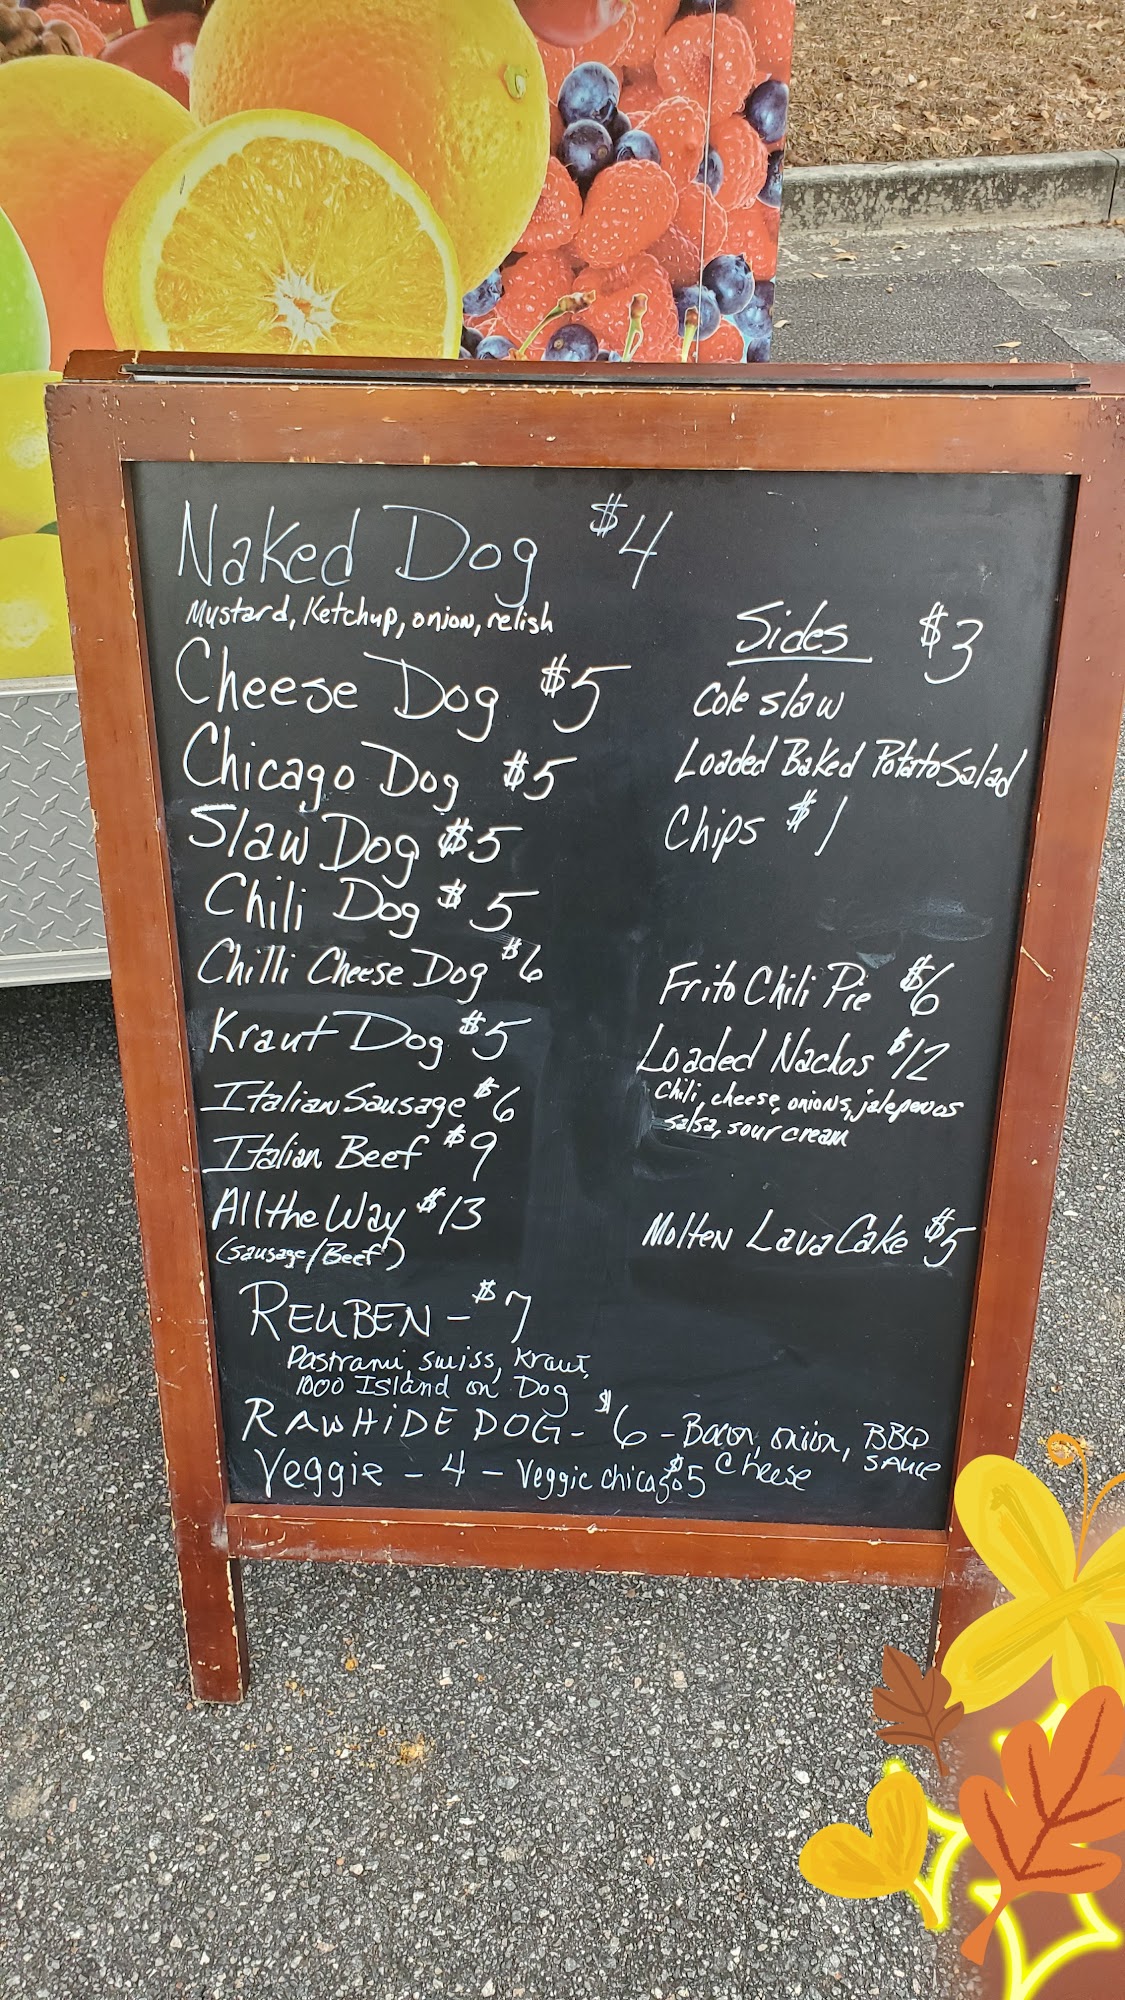 Naked Dog $4
Mustard, Ketchup, onion, relish
Cheese Dog $5
Chicago Dog $5
Slaw Dog $5
Chili Dog $5
Chilli Cheese Dog $6
Kraut Dog $5
Italian Sausage $6
Italian Beef $9
All the Way $13
(Sausage/Beef)
REUBEN - $7
Pastrami, swiss, Kraut,
1000 Island on Dog
RAWHIDE DOG - $6 - Bacon, onion, BBQ SAUCE
Cheese
Veggie - 4 - Veggie chicago $5
Sides $3
Cole slaw
Loaded Baked Potato Salad
Chips $1
Frito Chili Pie $6
Loaded Nachos $12
Chili, cheese, onions, jalepenos
salsa, sour cream
Molten Lava Cake $5